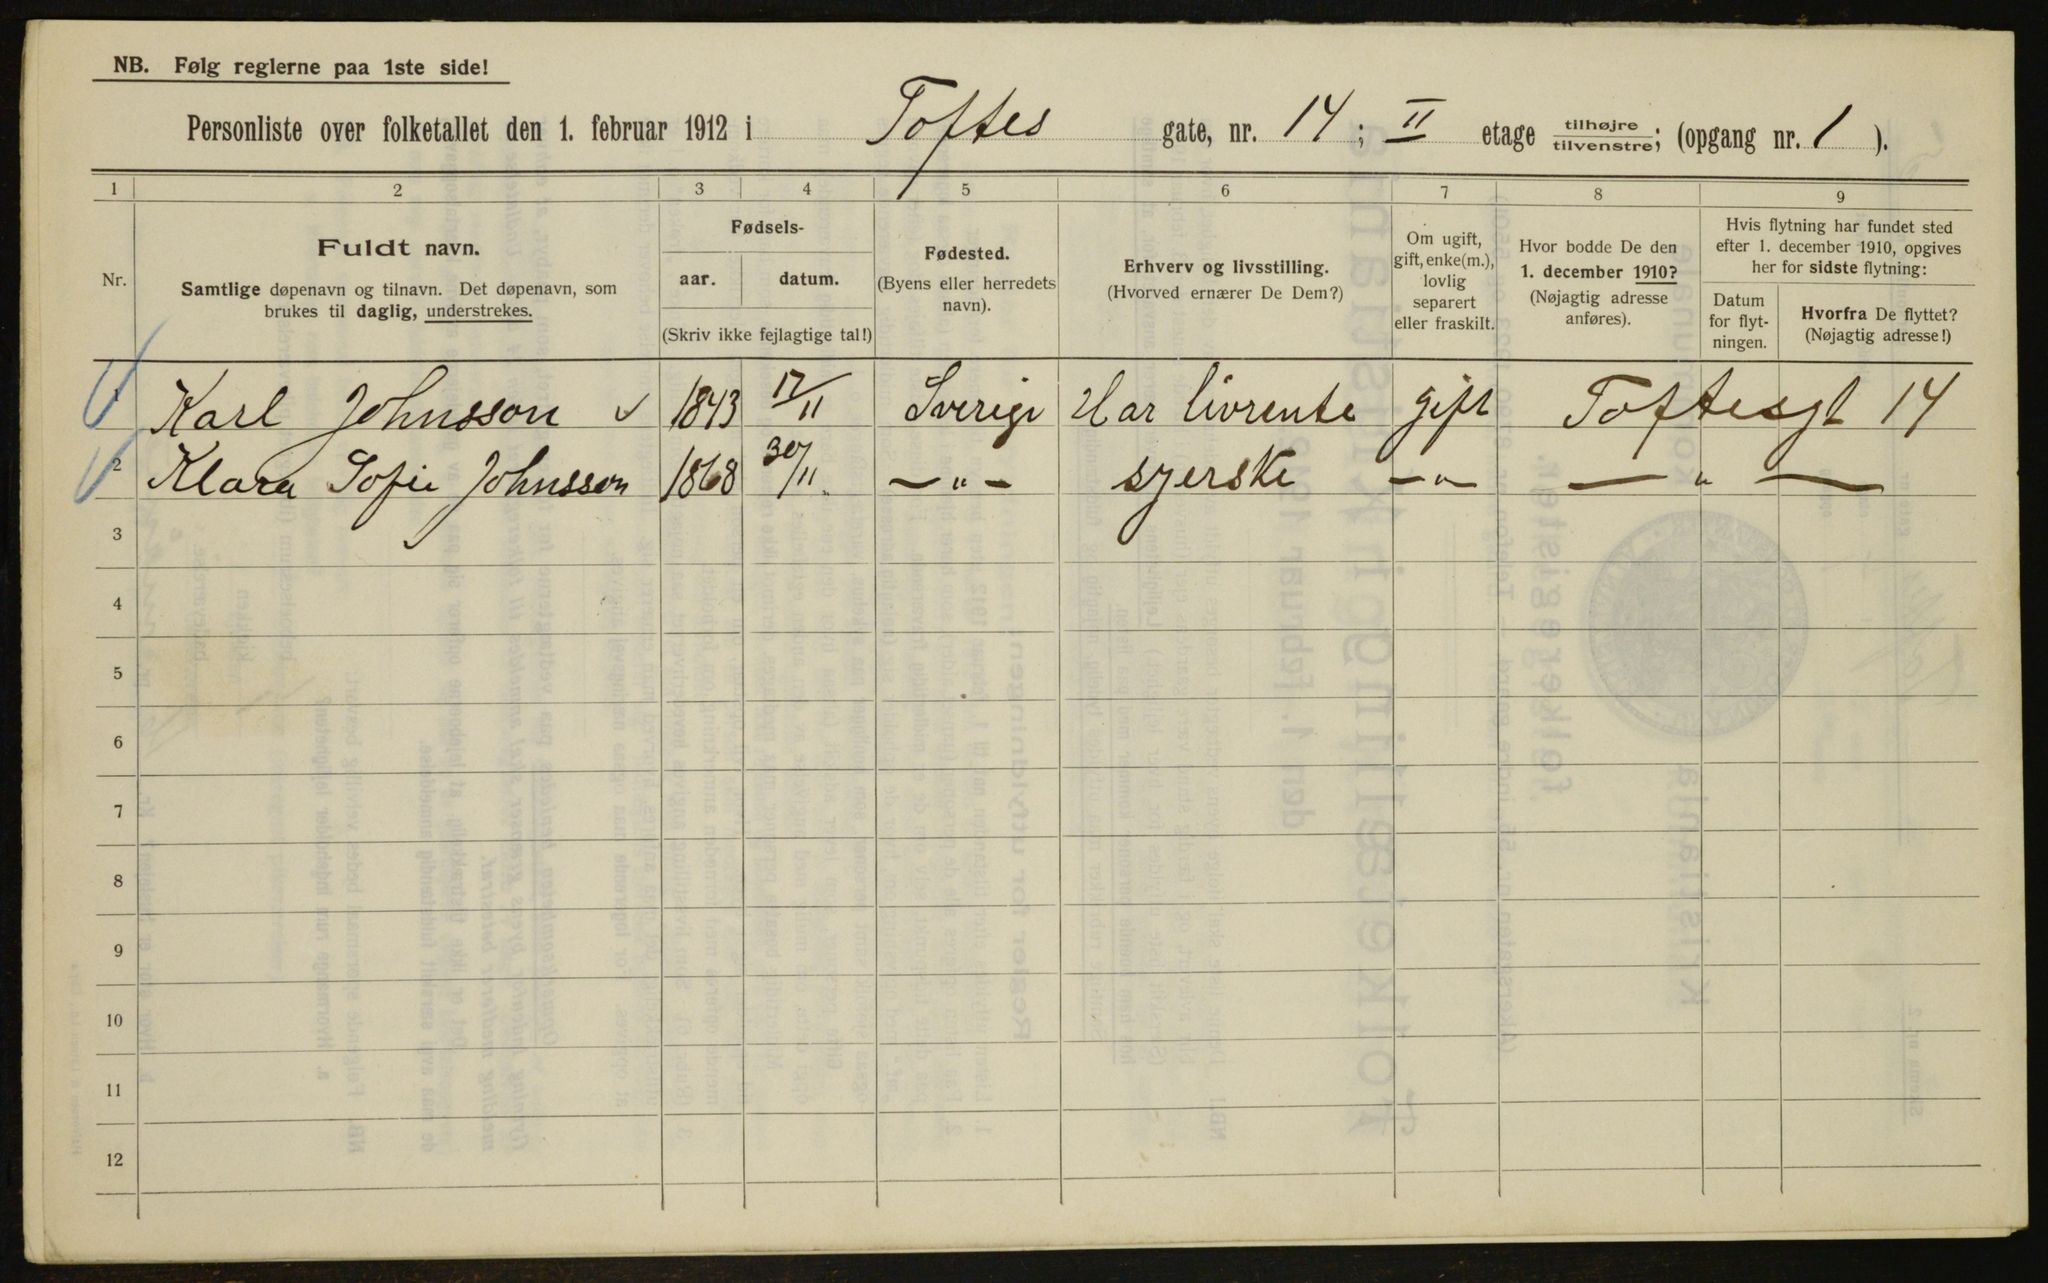 NB. Følg reglerne paa 1ste side!
Personliste over folketallet den 1. februar 1912 i Toftes gate, nr. 14; II etage tilhøjre tilvenstre; (opgang nr. 1).
1 2 3 4 5 6 7 8 9
Nr.
Fuldt navn.
Samtlige døpenavn og tilnavn. Det døpenavn, som
brukes til daglig, understrekes.
Fødsels-
aar. datum.
(Skriv ikke fejlagtige tal!)
Fødested.
(Byens eller herredets
navn).
Erhverv og livsstilling.
(Hvorved ernærer De Dem?)
Om ugift,
gift, enke(m.),
lovlig
separert
eller fraskilt.
Hvor bodde De den
1. december 1910?
(Nøjagtig adresse
anføres).
Hvis flytning har fundet sted
efter 1. december 1910, opgives
her for sidste flytning:
Datum
for flyt-
ningen.
Hvorfra De flyttet?
(Nøjagtig adresse!)
1 Karl Johnsson 1843 17/11 Sverige Har livrente gift Toftesgt 14
2 Klara Sofie Johnsson 1868 30/11 — " — syerske — " — — " —
3
4
5
6
7
8
9
10
11
12